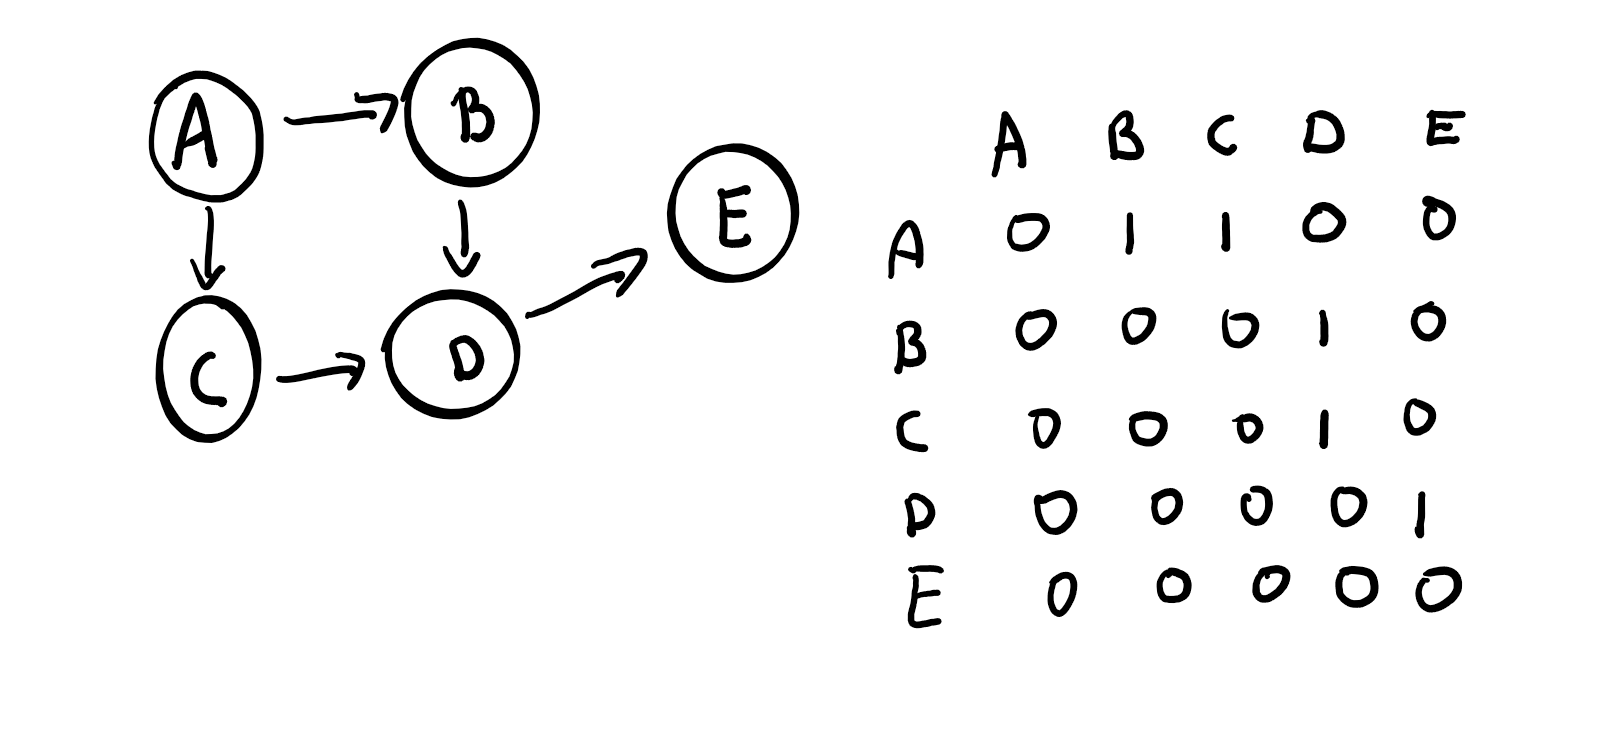 A B
E
C D
A B C D E
A 0 1 1 0 0
B 0 0 0 1 0
C 0 0 0 1 0
D 0 0 0 0 1
E 0 0 0 0 0